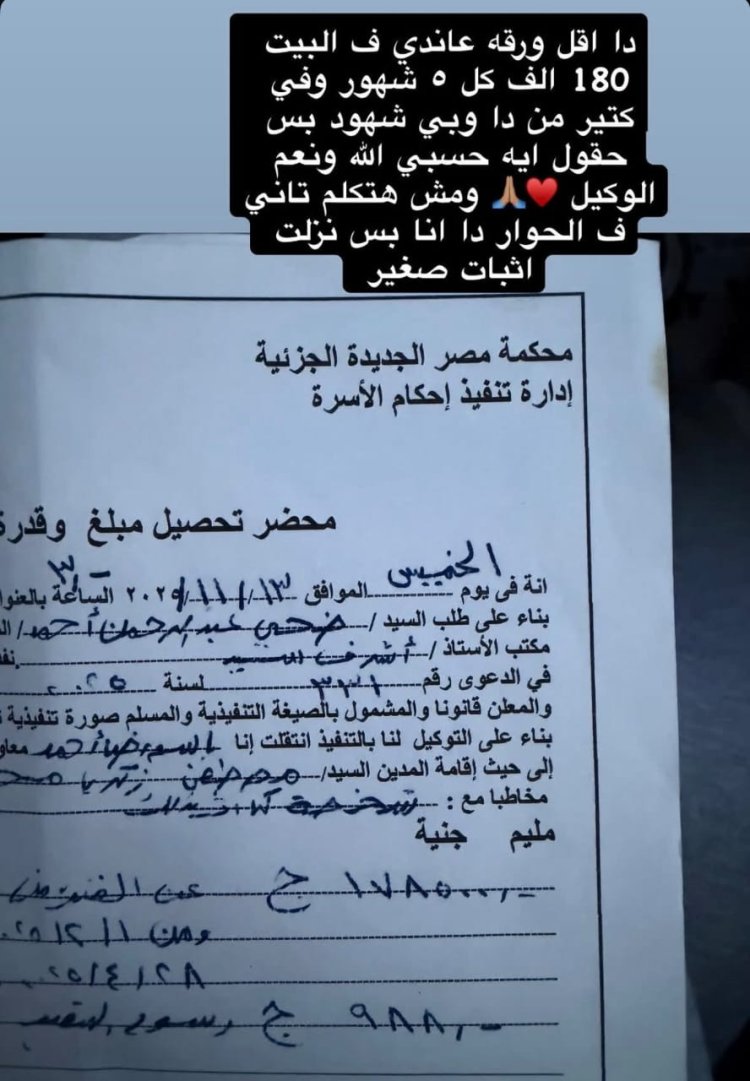 دا اقل ورقه عاندي ف البيت
180 الف كل ٥ شهور وفي
كتير من دا وبي شهود بس
حقول ايه حسبي الله ونعم
الوكيل ♥️🙏🏽 ومش هتكلم تاني
ف الحوار دا انا بس نزلت
اثبات صغير
محكمة مصر الجديدة الجزئية
إدارة تنفيذ إحكام الأسرة
محضر تحصيل مبلغ وقدرة
انة فى يوم الخميس الموافق ١٣/١١/٢٠٢٥ الساعة بالعنوا
بناء على طلب السيد / ضحى عبد الرحمن أحمد /
مكتب الأستاذ / أشرف
في الدعوى رقم ٣٣١ لسنة ٢٠٢٥
والمعلن قانونا والمشمول بالصيغة التنفيذية والمسلم صورة تنفيذية
بناء على التوكيل لنا بالتنفيذ انتقلت إنا أحمد معاو
إلى حيث إقامة المدين السيد/ مصطفى زكريا
مخاطبا مع :
مليم جنية
١٧٨٥٠٠,- ج عن
ومن ١/١٢
٢٨/٤/
٩٨٨,- ج رسوم